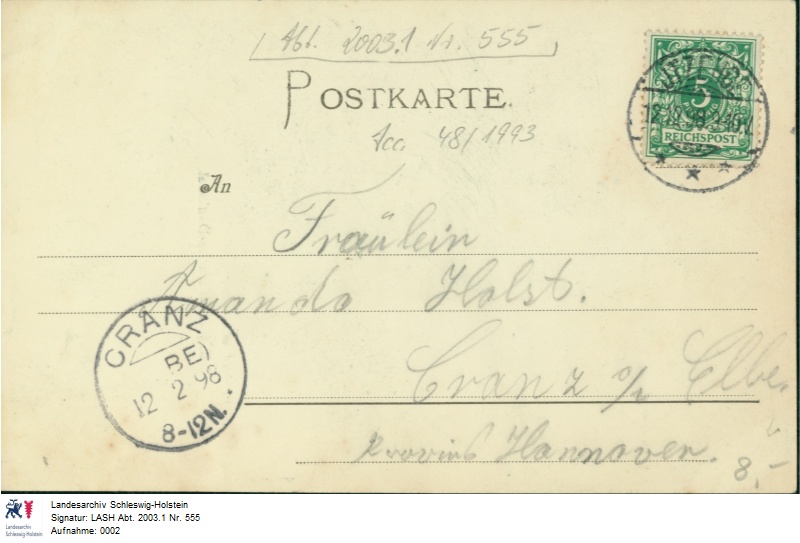 Abt. 2003.1 Nr. 555
POSTKARTE.
Acc. 48/1993
5
REICHSPOST
An
Fräulein
Amanda Holst.
Cranz a/ Elbe
Provinz Hannover.
CRANZ
(BE)
12 2 98
8-12N.
8,-
Landesarchiv Schleswig-Holstein
Landesarchiv Schleswig-Holstein
Signatur: LASH Abt. 2003.1 Nr. 555
Aufnahme: 0002